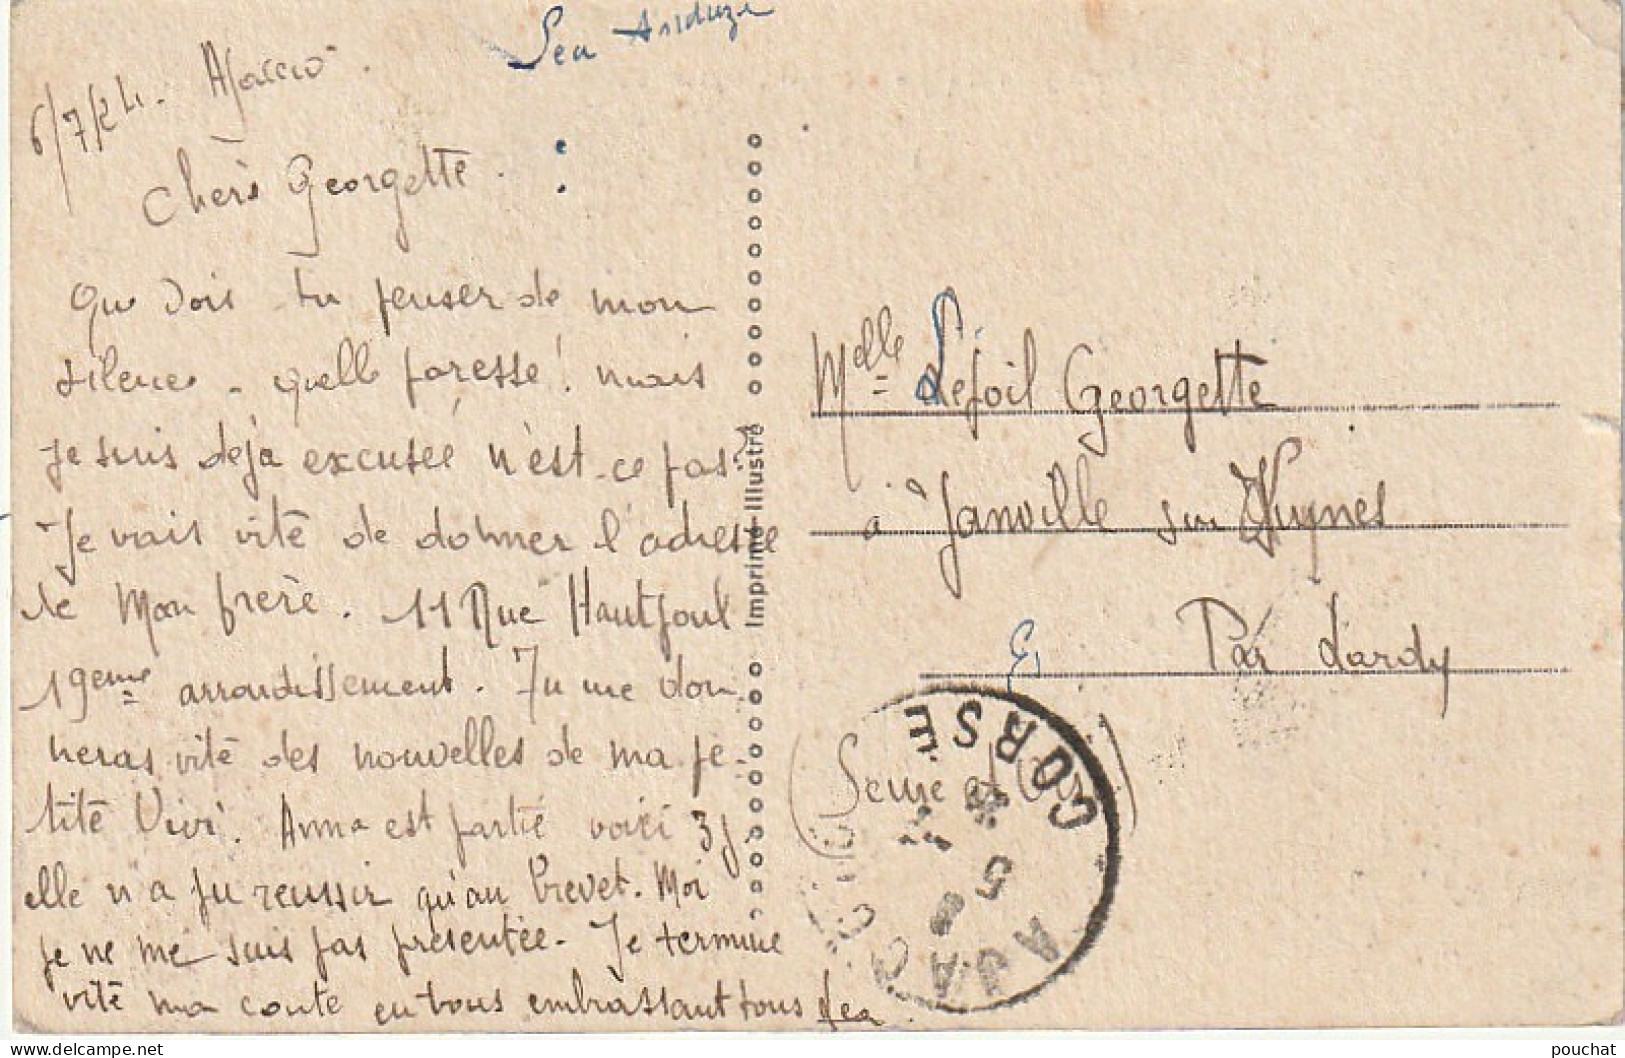 6/7/24. Ajaccio.
Chère Georgette.
Que dois tu penser de mon
silence. quelle paresse! mais
je suis déjà excusée n'est-ce pas?
Je vais vite de donner l'adresse
de Mon frère. 11 Rue Hautpoul
19eme arrondissement. Tu me don
neras vite des nouvelles de ma pe-
tite Vivi. Anna est partie voici 3 j.
elle n'a pu reussir qu'au brevet. Moi
je ne me suis pas présentée. Je termine
vite ma
en vous embrassant tous Lea
Imprimé Illustré
Melle Lefoil Georgette
à Janville sur Juynes
Par Lardy
Seine et Oise
AJACCIO
5
CORSE
pouchat